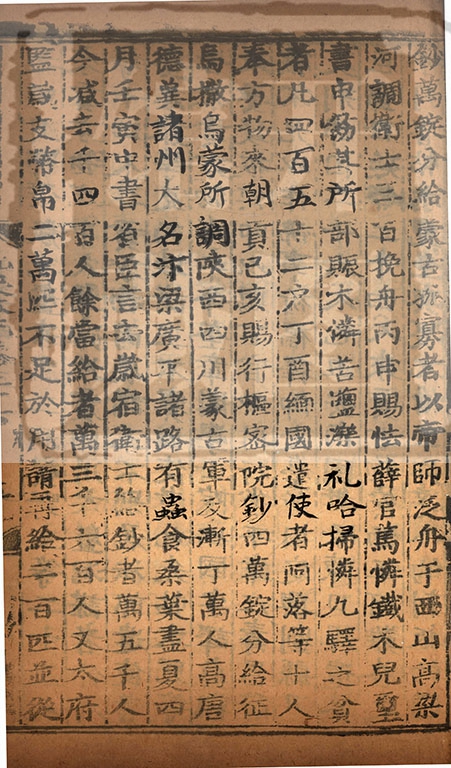 鈔萬錠分給蒙古孤寡者以帝師泛舟于西山高梁
河調衛士三百挽舟丙申賜怯薛官篤憐鐵木兒璽
書申飭其所部賑木憐苦鹽濼札哈掃憐九驛之貧
者凡四百五十二戶丁酉緬國遣使者阿落等十人
奉方物來朝貢己亥賜行樞密院鈔四萬錠分給征
烏撒烏蒙所調陝西四川蒙古軍及漸丁萬人高唐
德冀諸州大名汴梁廣平諸路有蟲食桑葉盡夏四
月壬寅中書省臣言去歲宿衛士給鈔者萬五千人
今减去千四百人餘當給者萬三千六百人又太府
監歲支幣帛二萬匹不足於用請再給二百匹並從